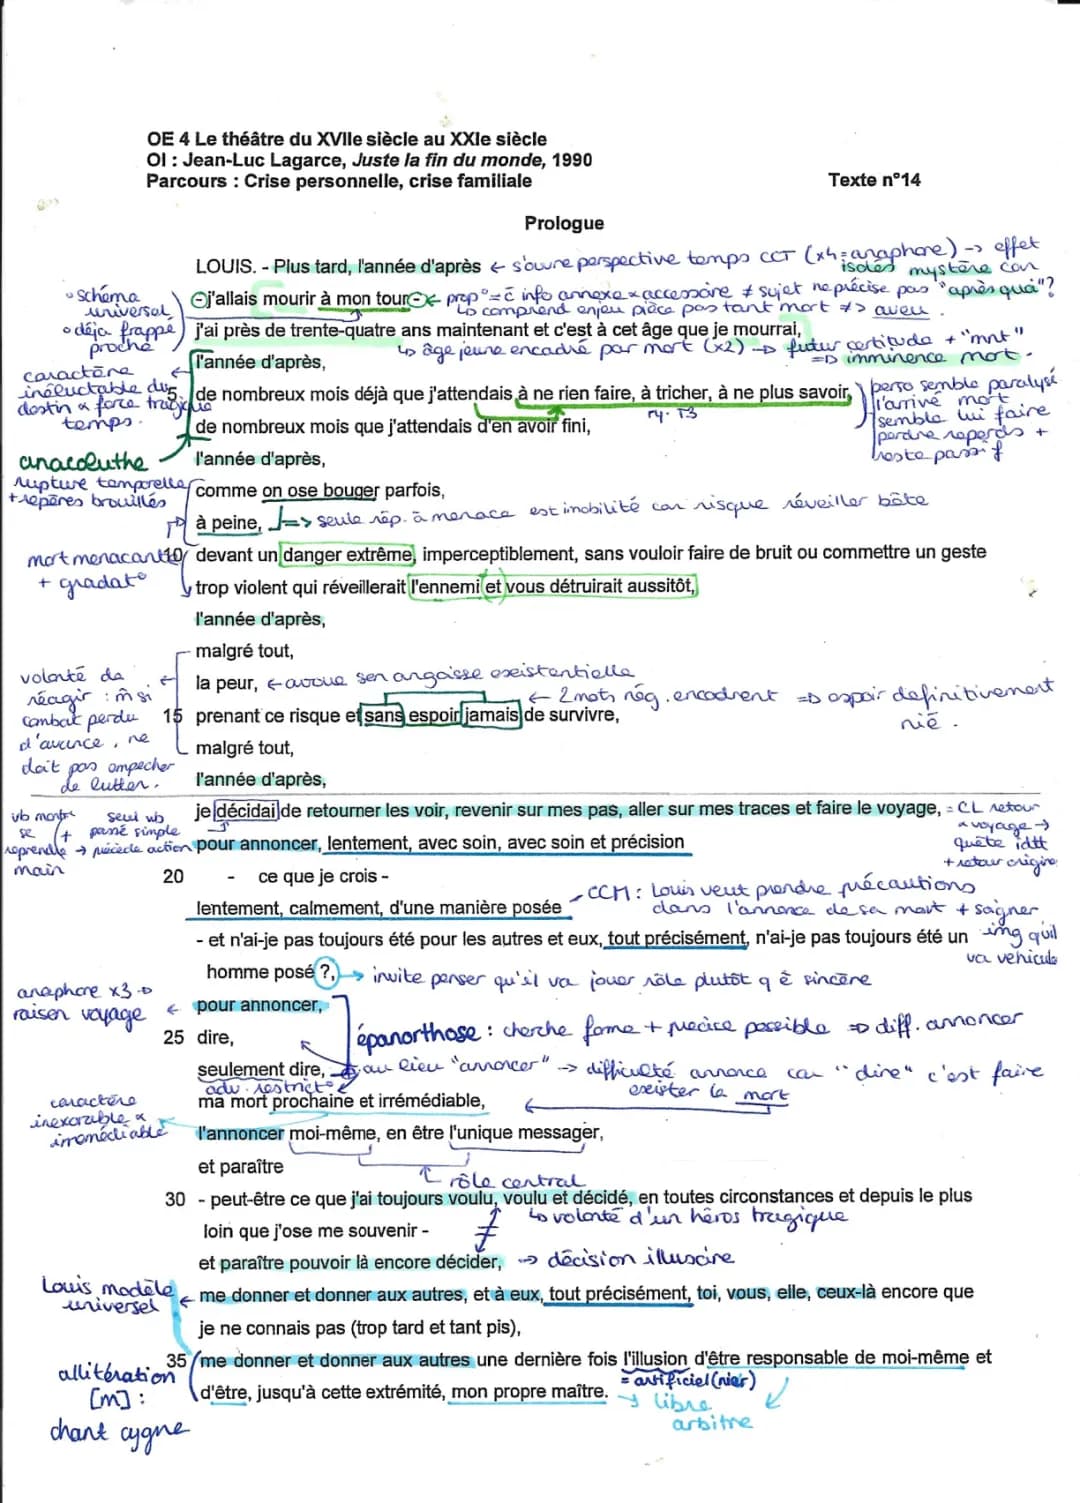 OE 4 Le théâtre du XVIIe siècle au XXIe siècle
OI : Jean-Luc Lagarce, Juste la fin du monde, 1990
Parcours : Crise personnelle, crise familiale
Texte n°14
Prologue
LOUIS. - Plus tard, l'année d'après ← s'ouvre perspective temps CCT (x4 = anaphore) → effet
isolés mystère car
- j'allais mourir à mon tour - ← prop° = c info annexe & accessoire ≠ sujet ne précise pas "après quoi"?
↳ comprend enjeu pièce pas tant mort ≠> aveu.
• schéma
universel
• déja frappé
proche
j'ai près de trente-quatre ans maintenant et c'est à cet âge que je mourrai,
↳ âge jeune encadré par mort (x2) → futur certitude + "mnt"
=> imminence mort.
l'année d'après,
caractère
inéluctable du
destin & force tragique
temps.
5 de nombreux mois déjà que j'attendais à ne rien faire, à tricher, à ne plus savoir,
ry. T3
perso semble paralysé
l'arrivé mort
semble lui faire
perdre reperds +
reste passif
de nombreux mois que j'attendais d'en avoir fini,
l'année d'après,
anacoluthe
rupture temporelle
+ repères brouillés
comme on ose bouger parfois,
à peine, => seule rép. à menace est imobilité car risque réveiller bête
mort menacante
+ gradat°
10 devant un danger extrême, imperceptiblement, sans vouloir faire de bruit ou commettre un geste
trop violent qui réveillerait l'ennemi et vous détruirait aussitôt,
l'année d'après,
malgré tout,
volonté de
réagir : m̂ si
combat perdu
d'avance, ne
doit pas empecher
de lutter.
la peur, ← avoue son angoisse existentielle
← 2 mots nég. encadrent => espoir definitivement
nié.
15 prenant ce risque et sans espoir jamais de survivre,
malgré tout,
l'année d'après,
je décidai de retourner les voir, revenir sur mes pas, aller sur mes traces et faire le voyage, = CL retour
& voyage →
quête idtt
+ retour origine
vb montre
se
reprendre
main
+ seul vb
passé simple
→ précède action
pour annoncer, lentement, avec soin, avec soin et précision
20 - ce que je crois -
CCM : Louis veut prendre précautions
dans l'annonce de sa mort + soigner
img qu'il
va véhiculé
lentement, calmement, d'une manière posée
- et n'ai-je pas toujours été pour les autres et eux, tout précisément, n'ai-je pas toujours été un
homme posé ?, → invite penser qu'il va jouer rôle plutôt q ê sincère
anaphore x3 →
raison voyage
pour annoncer,
25 dire,
épanorthose : cherche forme + précise possible => diff. annoncer
seulement dire, au lieu "annoncer" → difficulté annonce car "dire" c'est faire
exister la mort
adv. restrict°
ma mort prochaine et irrémédiable,
caractère
inexorable &
irrémédiable
l'annoncer moi-même, en être l'unique messager,
et paraître
rôle central
30 - peut-être ce que j'ai toujours voulu, voulu et décidé, en toutes circonstances et depuis le plus
↳ volonté d'un héros tragique
loin que j'ose me souvenir -
≠
et paraître pouvoir là encore décider, → décision illusoire
Louis modèle
universel
me donner et donner aux autres, et à eux, tout précisément, toi, vous, elle, ceux-là encore que
je ne connais pas (trop tard et tant pis),
35 me donner et donner aux autres une dernière fois l'illusion d'être responsable de moi-même et
= artificiel (nier)
allitération
[m] :
chant cygne
d'être, jusqu'à cette extrémité, mon propre maître.
→ libre
arbitre